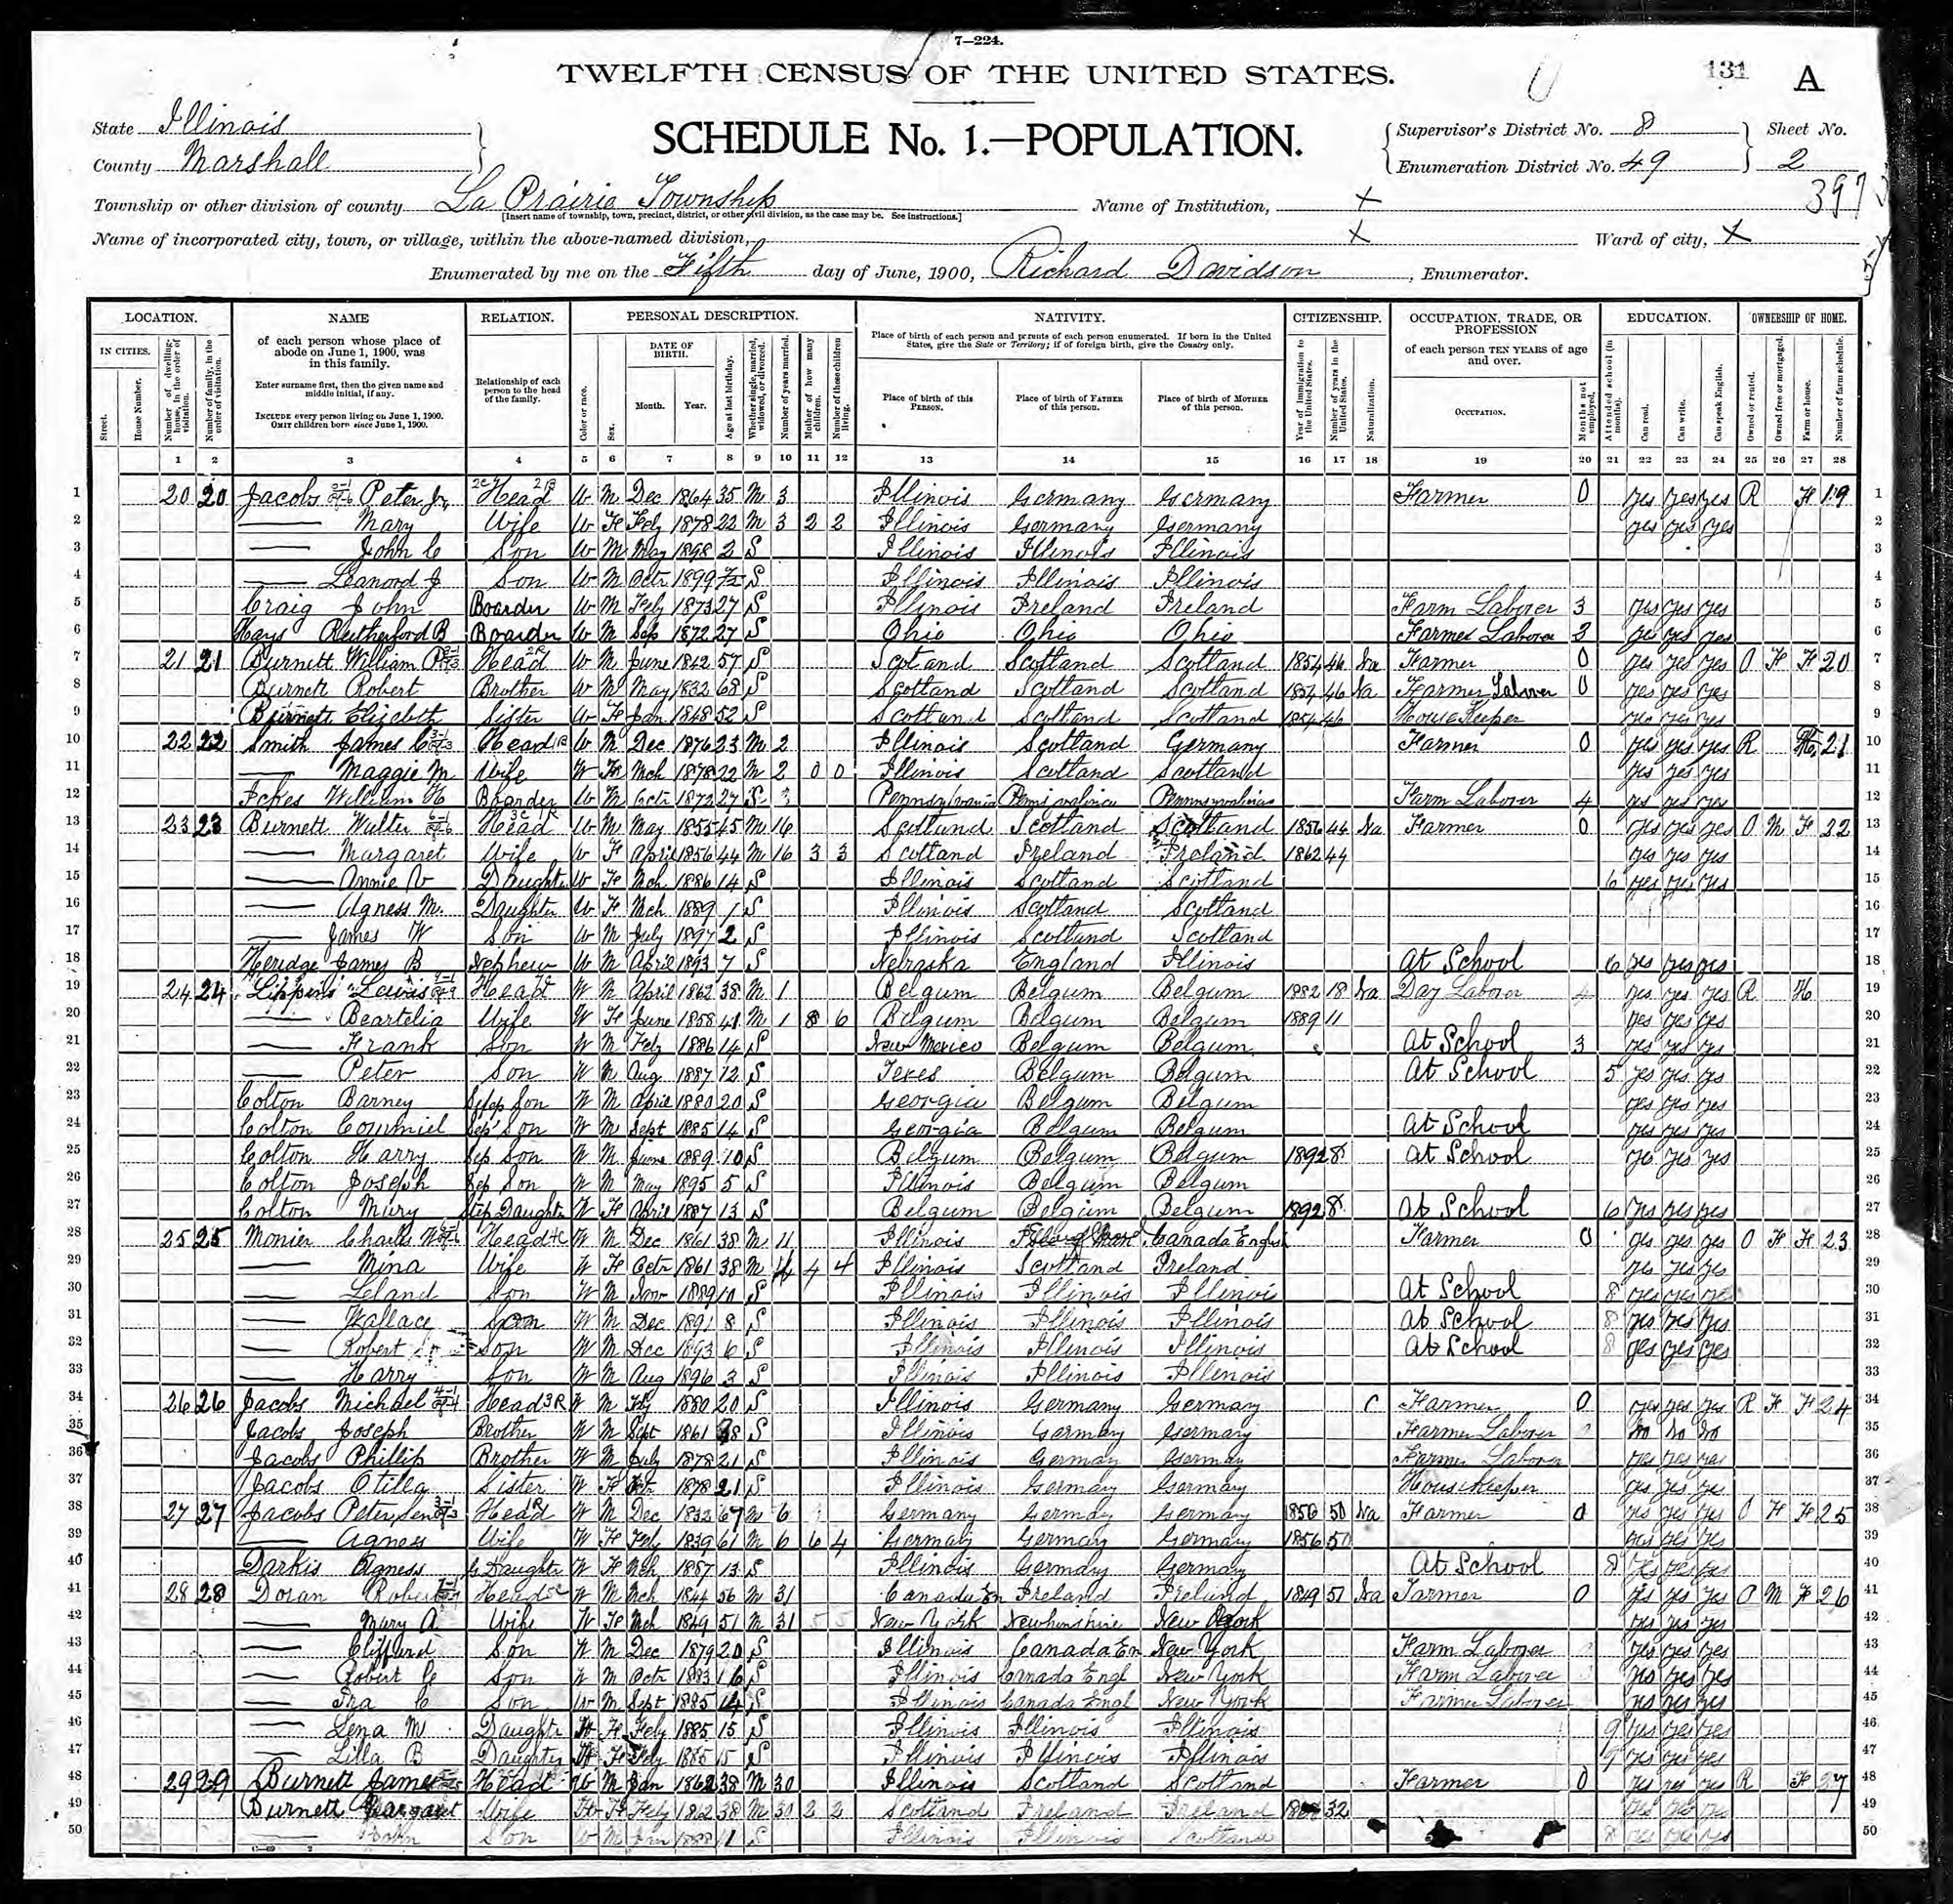 7—224.
TWELFTH CENSUS OF THE UNITED STATES.
131 A
State Illinois
County Marshall
SCHEDULE No. 1.—POPULATION.
Supervisor's District No. 8 Sheet No.
Enumeration District No. 49 2
397
Township or other division of county La Prairie Township Name of Institution, X
[Insert name of township, town, precinct, district, or other civil division, as the case may be. See instructions.]
Name of incorporated city, town, or village, within the above-named division, X Ward of city, X
Enumerated by me on the Fifth day of June, 1900, Richard Davidson, Enumerator.
LOCATION. NAME RELATION. PERSONAL DESCRIPTION. NATIVITY. CITIZENSHIP. OCCUPATION, TRADE, OR PROFESSION EDUCATION. OWNERSHIP OF HOME.
IN CITIES.
Street.
House Number.
Number of dwelling-house, in the order of visitation.
Number of family, in the order of visitation.
of each person whose place of abode on June 1, 1900, was in this family.
Enter surname first, then the given name and middle initial, if any.
INCLUDE every person living on June 1, 1900.
OMIT children born since June 1, 1900.
Relationship of each person to the head of the family.
Color or race.
Sex.
DATE OF BIRTH.
Month. Year.
Age at last birthday.
Whether single, married, widowed, or divorced.
Number of years married.
Mother of how many children.
Number of these children living.
Place of birth of each person and parents of each person enumerated. If born in the United States, give the State or Territory; if of foreign birth, give the Country only.
Place of birth of this PERSON.
Place of birth of FATHER of this person.
Place of birth of MOTHER of this person.
Year of immigration to the United States.
Number of years in the United States.
Naturalization.
of each person TEN YEARS of age and over.
OCCUPATION.
Months not employed.
Attended school (in months).
Can read.
Can write.
Can speak English.
Owned or rented.
Owned free or mortgaged.
Farm or house.
Number of farm schedule.
1 2 3 4 5 6 7 8 9 10 11 12 13 14 15 16 17 18 19 20 21 22 23 24 25 26 27 28
1 20 20 Jacobs Peter Jr. Head W M Dec 1864 35 M 3 Illinois Germany Germany Farmer 0 yes yes yes R F 19 1
2 Mary Wife W F Feby 1878 22 M 3 2 2 Illinois Germany Germany yes yes yes 2
3 John C Son W M May 1898 2 S Illinois Illinois Illinois 3
4 Leanord J Son W M Octr 1899 7/12 S Illinois Illinois Illinois 4
5 Craig John Boarder W M Feby 1873 27 S Illinois Ireland Ireland Farm Laborer 3 yes yes yes 5
6 Hays Rutherford B Boarder W M Sep 1872 27 S Ohio Ohio Ohio Farmer Laborer 3 yes yes yes 6
7 21 21 Burnett William P Head W M June 1842 57 S Scotland Scotland Scotland 1854 46 Na Farmer 0 yes yes yes O F F 20 7
8 Burnett Robert Brother W M May 1832 68 S Scotland Scotland Scotland 1854 46 Na Farmer Laborer 0 yes yes yes 8
9 Burnett Elizebeth Sister W F Jan 1848 52 S Scotland Scotland Scotland 1854 46 House Keeper yes yes yes 9
10 22 22 Smith James C Head W M Dec 1876 23 M 2 Illinois Scotland Germany Farmer 0 yes yes yes R 21 10
11 Maggie M Wife W F Mch 1878 22 M 2 0 0 Illinois Scotland Scotland yes yes yes 11
12 William H Boarder W M Octr 1872 27 S Pennsylvania Farm Laborer 4 yes yes yes 12
13 23 23 Burnett Walter Head W M May 1855 45 M 16 Scotland Scotland Scotland 1856 44 Na Farmer 0 yes yes yes O M F 22 13
14 Margaret Wife W F April 1856 44 M 16 3 3 Scotland Ireland Ireland 1862 44 yes yes yes 14
15 Annie V Daughter W F Mch 1886 14 S Illinois Scotland Scotland 6 yes yes yes 15
16 Agness M. Daughter W F Mch 1889 1 S Illinois Scotland Scotland 16
17 James W Son W M July 1897 2 S Illinois Scotland Scotland 17
18 James B Nephew W M April 1893 7 S Nebraska England Illinois At School 6 yes yes yes 18
19 24 24 Lippins Lewis Head W M April 1862 38 M 1 Belgum Belgum Belgum 1882 18 Na Day Laborer 4 yes yes yes R H 19
20 Beartelia Wife W F June 1858 41 M 1 8 6 Belgum Belgum Belgum 1889 11 yes yes yes 20
21 Frank Son W M Feby 1886 14 S New Mexico Belgum Belgum At School 3 yes yes yes 21
22 Peter Son W M Aug 1887 12 S Texes Belgum Belgum At School 5 yes yes yes 22
23 Colton Barney Step Son W M April 1880 20 S Georgia Belgum Belgum yes yes yes 23
24 Colton Son W M Sept 1885 14 S Georgia Belgum Belgum At School yes yes yes 24
25 Colton Harry Sep Son W M June 1889 10 S Belgum Belgum Belgum 1892 8 At School yes yes yes 25
26 Colton Joseph Sep Son W M May 1895 5 S Illinois Belgum Belgum 26
27 Colton Mary Step Daughter W F April 1887 13 S Belgum Belgum Belgum 1892 8 At School 6 yes yes yes 27
28 25 25 Monier Charles Head W M Dec 1861 38 M 11 Illinois Canada English Farmer 0 yes yes yes O F F 23 28
29 Mina Wife W F Octr 1861 38 M 4 4 Illinois Scotland Ireland yes yes yes 29
30 Leland Son W M Nov 1889 10 S Illinois Illinois Illinoi At School 8 yes yes yes 30
31 Wallace Son W M Dec 1891 8 S Illinois Illinois Illinois At School 8 yes yes yes 31
32 Robert Son W M Dec 1893 6 S Illinois Illinois Illinois At School 8 yes yes yes 32
33 Harry Son W M Aug 1896 3 S Illinois Illinois Illenois 33
34 26 26 Jacobs Michael Head W M 1880 20 S Illinois Germany Germany C Farmer 0 yes yes yes R F F 24 34
35 Jacobs Joseph Brother W M Sept 1861 38 S Illinois Germany Germany Farmer Laborer No No No 35
36 Jacobs Phillip Brother W M July 1878 21 S Illinois Germany Germany Farmer Laborer yes yes yes 36
37 Jacobs Otilla Sister W F Octr 1878 21 S Illinois Germay Germany House Keeper yes yes yes 37
38 27 27 Jacobs Peter Sen Head W M Dec 1832 67 M 6 Germany Germay Germany 1850 50 Na Farmer 0 yes yes yes O F F 25 38
39 Agness Wife W F Feby 1839 61 M 6 6 4 Germany Germany Germany 1856 yes yes yes 39
40 Darkis Agness G Daughter W F Mch 1887 13 S Illinois Germany Germany At School 8 yes yes yes 40
41 28 28 Doran Robert Head W M Mch 1844 56 M 31 Canada En Ireland Ireland 1849 51 Na Farmer 0 yes yes yes O M F 26 41
42 Mary A Wife W F Mch 1849 51 M 31 5 5 New York Newhamshire New York yes yes yes 42
43 Clifford Son W M Dec 1879 20 S Illinois Canada En New York Farm Laborer yes yes yes 43
44 Robert C Son W M Octr 1883 16 S Illinois Canada Engl New York Farm Laborer yes yes yes 44
45 Ira C Son W M Sept 1885 14 S Illinois Canada Engl New York Farmer Laborer yes yes yes 45
46 Lena M Daughte W F Feby 1885 15 S Illinois Illinois Illinois 9 yes yes yes 46
47 Lilla B Daughter W F Feby 1885 15 S Illinois Illinois Illinois 9 yes yes yes 47
48 29 29 Burnett James Head W M Jan 1862 38 M 30 Illinois Scotland Scotland Farmer 0 yes yes yes R F 27 48
49 Burnett Margaret Wife W F Feby 1862 38 M 30 2 2 Scotland Ireland Ireland 32 yes yes yes 49
50 John Son W M 1888 11 S Illinois Illinois Scotland 8 yes yes yes 50